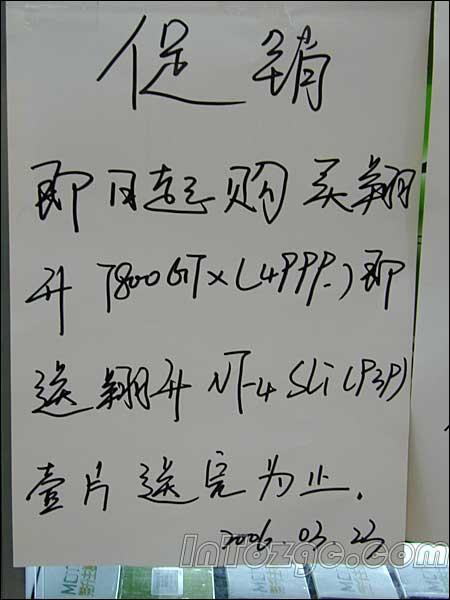 促销
即日起购买翔
升7800GTX(4999.)即
送翔升NF4 SLi(939)
壹片送完为止.
2006.03.23
Infozgc.com
MC
MC